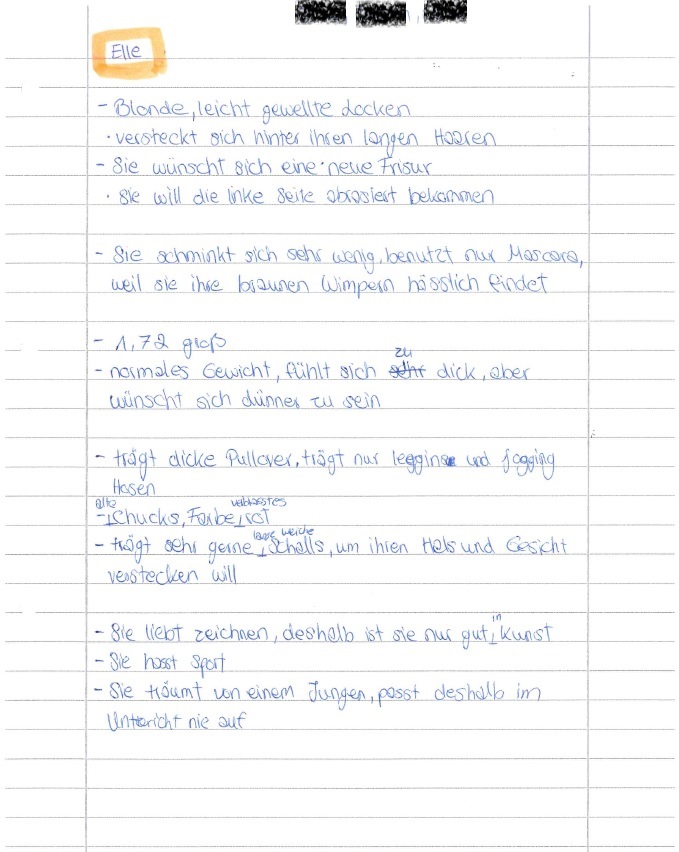 Elle
- Blonde, leicht gewellte Locken
· versteckt sich hinter ihren langen Haaren
- Sie wünscht sich eine neue Frisur
· Sie will die linke Seite abrasiert bekommen
- Sie schminkt sich sehr wenig, benutzt nur Mascara,
weil sie ihre braunen Wimpern hässlich findet
- 1,72 groß
- normales Gewicht, fühlt sich zu dick, aber
wünscht sich dünner zu sein
- trägt dicke Pullover, trägt nur leggins und jogging
Hosen
- alte Chucks, Farbe verblasstes rot
- trägt sehr gerne lange weiche Schalls, um ihren Hals und Gesicht
verstecken will
- Sie liebt zeichnen, deshalb ist sie nur gut in Kunst
- Sie hasst Sport
- Sie träumt von einem Jungen, passt deshalb im
Unterricht nie auf